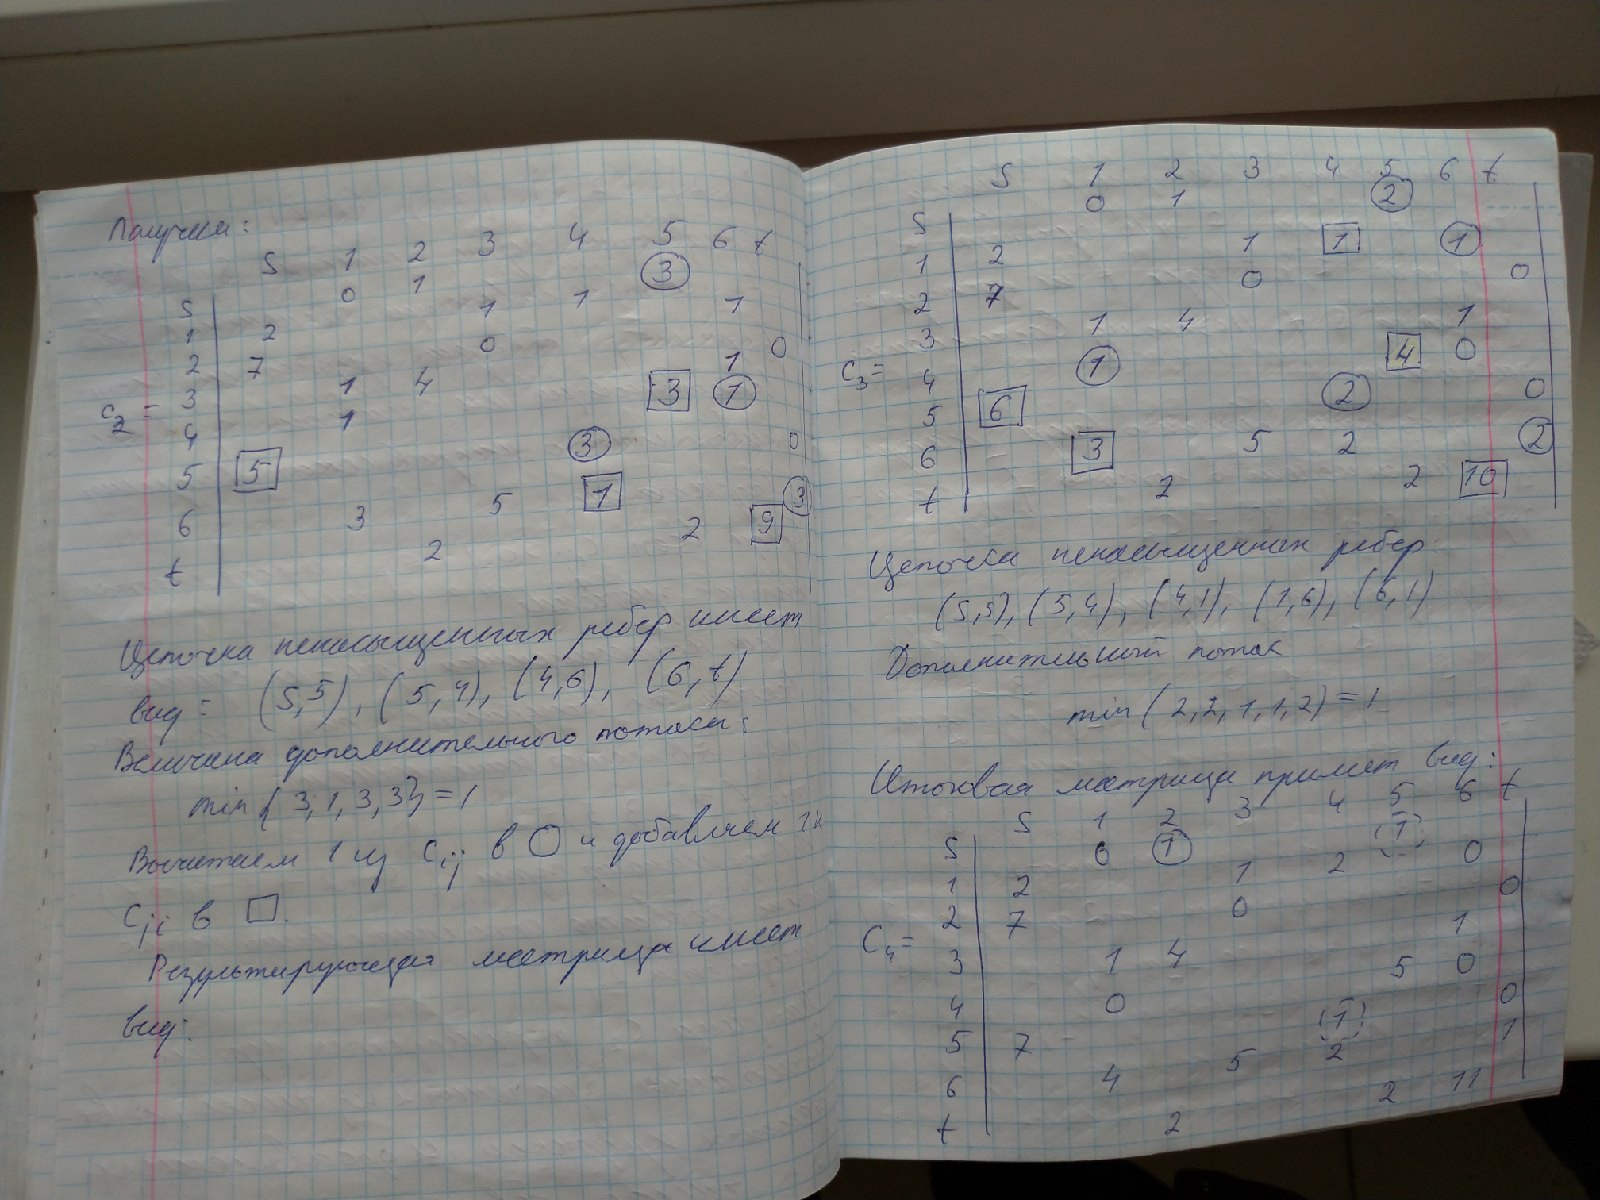 Получили:
S 1 2 3 4 5 6 t
S 0 1 3
1 2 1 1 1
2 7 0 0
3 1 4 1
C2 =
4 1 3 1
5 5 3 0
6 3 5 1 3
t 2 2 9
Цепочка ненасыщенных ребер имеет
вид: (S,5), (5,4), (4,6), (6,t)
Величина дополнительного потока:
min{3,1,3,3} = 1
Вычитаем 1 из Cij в ○ и добавляем 1 к
Cji в □.
Результирующая матрица имеет
вид:
S 1 2 3 4 5 6 t
S 0 1 2
1 2 1 1 1
2 7 0 0
3 1 4 1
C3 =
4 1 4 0
5 6 2 0
6 3 5 2 2
t 2 2 10
Цепочка ненасыщенных ребер
(S,5), (5,4), (4,1), (1,6), (6,1)
Дополнительный поток
min(2,2,1,1,2) = 1
Итоговая матрица примет вид:
S 1 2 3 4 5 6 t
S 0 1 1
1 2 1 2 0
2 7 0 0
C4 =
3 1 4 1
4 0 5 0
5 7 1 0
6 4 5 2 1
t 2 2 11